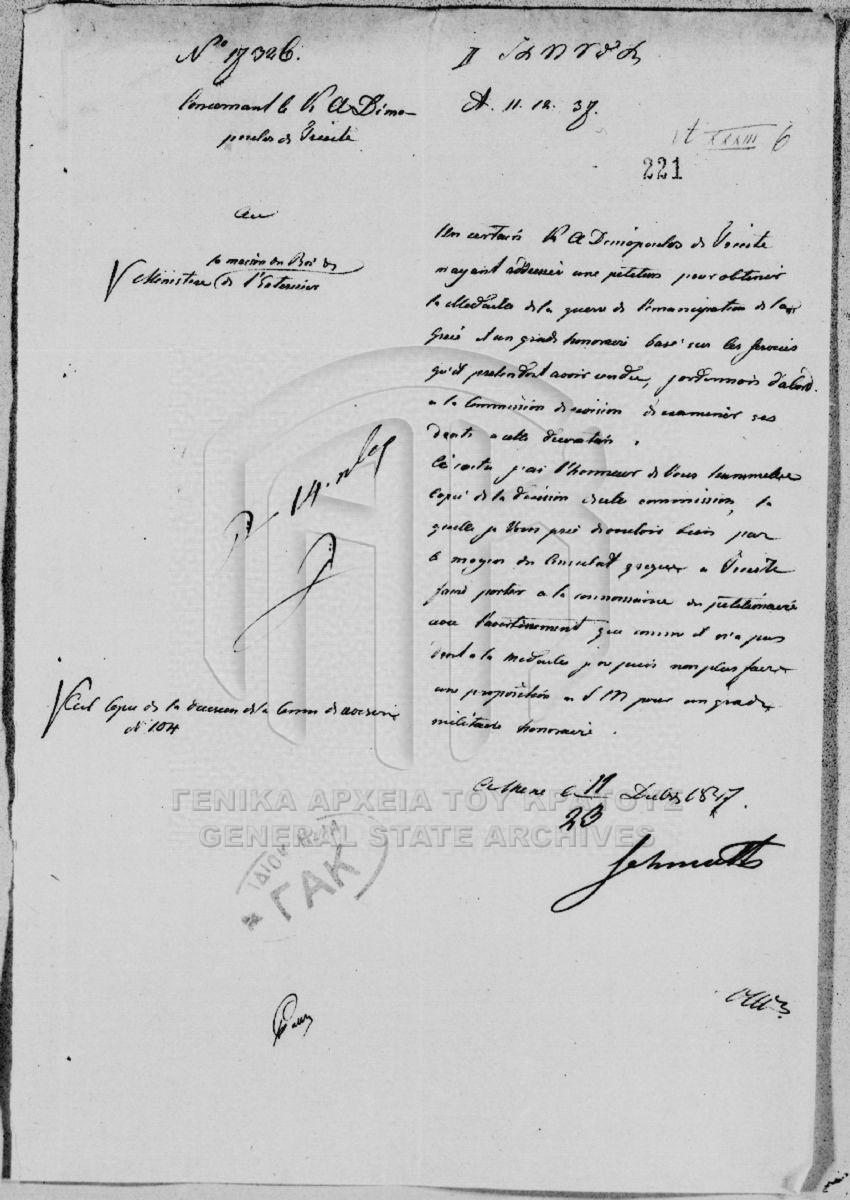 N° 17326.
Concernant le K A Dimo-
poulos de Trieste
Au
la maison du Roi &
Ministère de l'Exterieur
A. 11. 12. 37.
XXXIII 6
221
Un certain K A Dimopoulos de Trieste
m'ayant addressé une petition pour obtenir
la Medaille de la guerre de l'émancipation de la
Grèce et un grade honoraire basé sur les services
qu'il pretendoit avoir rendu, j'ordonnois d'abord
a la Commission de revision d'examiner ses
droits a cette decoration.
j'ai l'honneur de Vous soumettre
Copie de la décision de cette commission, la
quelle je Vous prie de vouloir bien par
le moyen du Consulat grec a Trieste
faire porter a la connoissance du petitionaire
avec l'avertissement que comme il n'a pas
droit a la medaille je ne puis non plus faire
une proposition a S M pour un grade
militaire honoraire.
Athene le 11/23 Decbr 1837.
Schmaltz
Copie de la decision de la Comm de revision
N 104
ΓΕΝΙΚΑ ΑΡΧΕΙΑ ΤΟΥ ΚΡΑΤΟΥΣ
GENERAL STATE ARCHIVES
ΓΑΚ